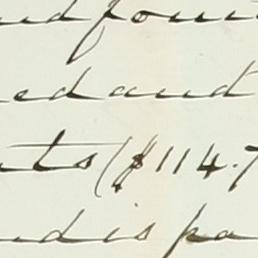 nd four
ed and
nts ($114.7
nd is pa